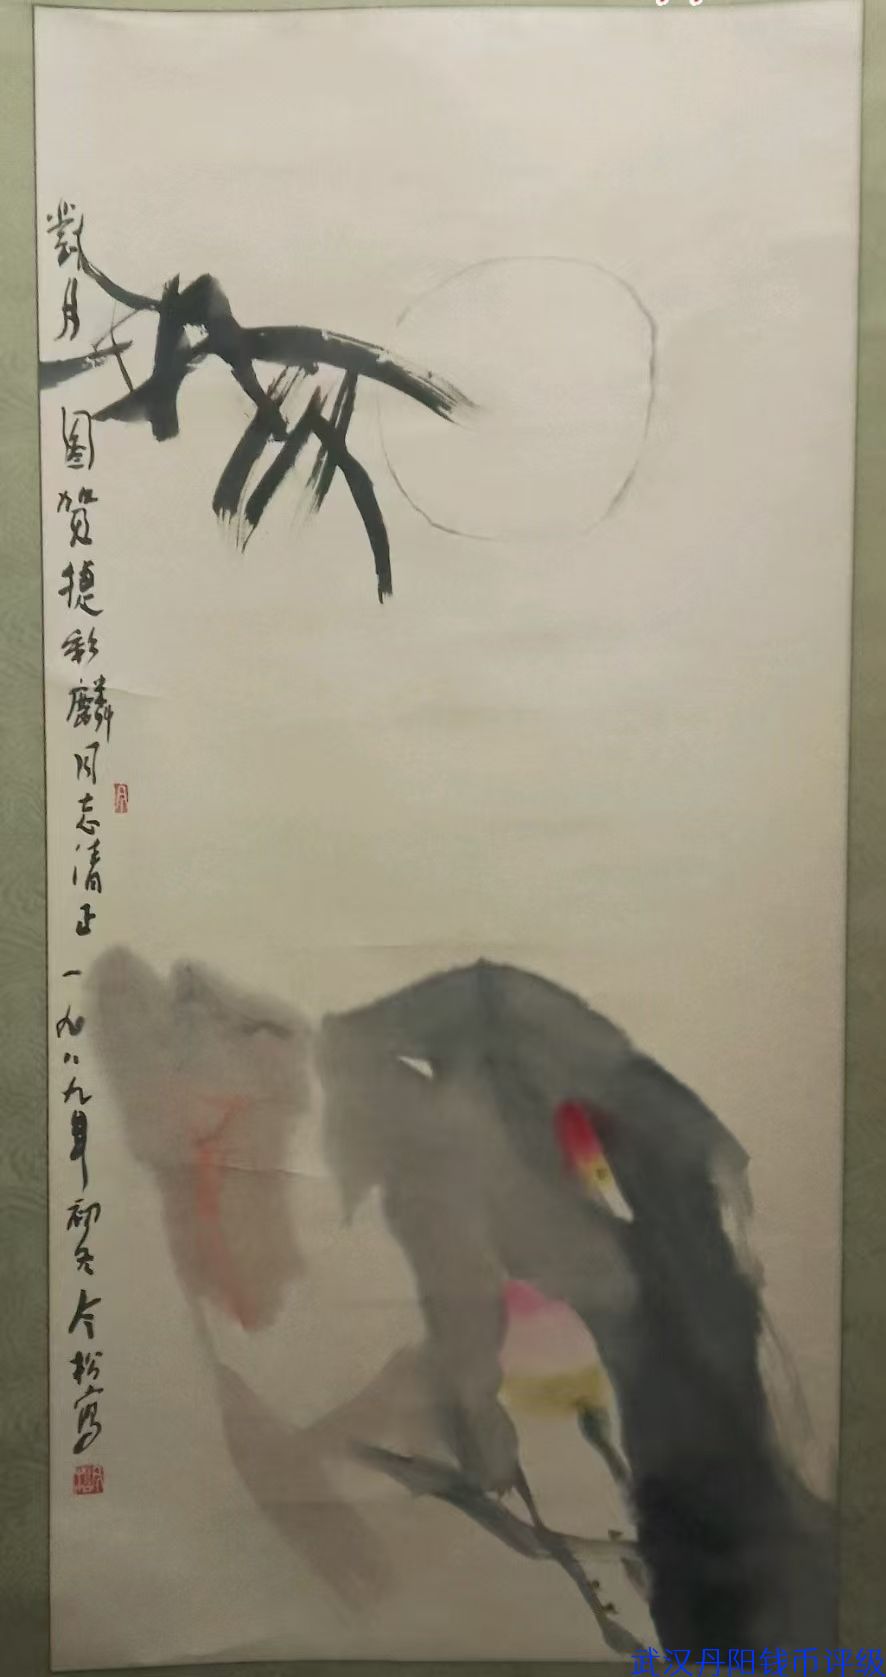 對月圖賀捷彩麟同志清正一九八九年初冬今松寫
武汉丹阳钱币评级